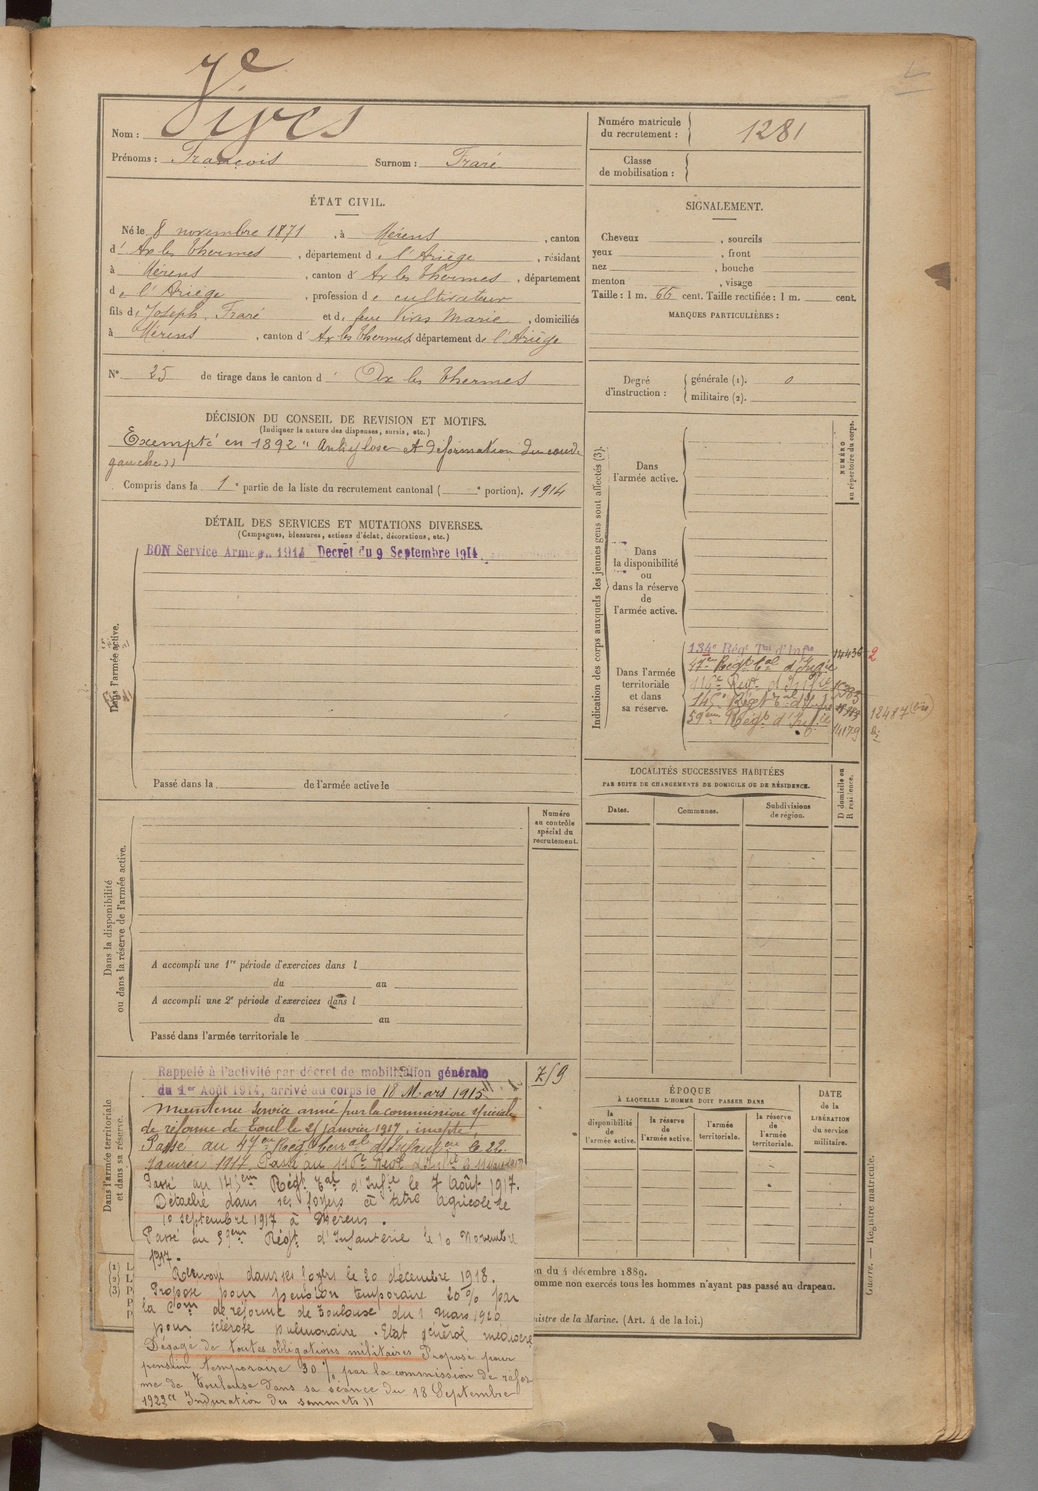 7e
Nom : Vives
Prénoms : François Surnom : Fraré
Numéro matricule
du recrutement : 1281
Classe
de mobilisation :
ÉTAT CIVIL.
Né le 8 novembre 1871, à Mérens, canton
d' Ax les Thermes, département de l'Ariège, résidant
à Mérens, canton d' Ax les Thermes, département
de l'Ariège, profession de cultivateur
fils de Joseph Fraré et de feue Vives Marie, domiciliés
à Mérens, canton d' Ax les Thermes département de l'Ariège
N° 25 de tirage dans le canton d' Ax les Thermes
SIGNALEMENT.
Cheveux , sourcils
yeux , front
nez , bouche
menton , visage
Taille : 1 m. 66 cent. Taille rectifiée : 1 m. cent.
MARQUES PARTICULIÈRES :
Degré
d'instruction :
générale (1). 0
militaire (2).
DÉCISION DU CONSEIL DE REVISION ET MOTIFS.
(Indiquer la nature des dispenses, sursis, etc.)
Exempté en 1892 " Ankylose et déformation du coude
gauche "
Compris dans la 1e partie de la liste du recrutement cantonal ( e portion). 1914
DÉTAIL DES SERVICES ET MUTATIONS DIVERSES.
(Campagnes, blessures, actions d'éclat, décorations, etc.)
BON Service Armé en 1914 Décret du 9 Septembre 1914
Dans l'armée active.
Passé dans la de l'armée active le
Indication des corps auxquels les jeunes gens sont affectés (3).
NUMÉRO
au répertoire du corps.
Dans
l'armée active.
Dans
la disponibilité
ou
dans la réserve
de
l'armée active.
Dans l'armée
territoriale
et dans
sa réserve.
134e Régt Tal d'Infie 14436 2
47me Régt Tal d'Infie
116e Régt d'Infie
145e Régt Tal d'Infie 12487 (bis)
59eme Régt d'Infie 14179
LOCALITÉS SUCCESSIVES HABITÉES
PAR SUITE DE CHANGEMENTS DE DOMICILE OU DE RÉSIDENCE.
Dates.
Communes.
Subdivisions
de région.
D domicile ou
R résidence.
Dans la disponibilité
ou dans la réserve de l'armée active.
Numéro
au contrôle
spécial du
recrutement.
A accompli une 1re période d'exercices dans l
du au
A accompli une 2e période d'exercices dans l
du au
Passé dans l'armée territoriale le
Dans l'armée territoriale
et dans sa réserve.
Rappelé à l'activité par décret de mobilisation générale
du 1er Août 1914, arrivé au corps le 18 Mars 1915
759
Maintenu service armé par la commission spéciale
de réforme de Toul le 21 janvier 1917, inapte,
Passé au 47eme Rég Terral d'Infanterie le 22
Janvier 1917, Passé au 116e Régt d'Infie le
Passé au 145em Régt Tal d'Infie le 7 Août 1917.
Détaché dans ses foyers à titre agricole le
10 septembre 1917 à Mérens.
Passé au 59eme Régt d'Infanterie le 10 Novembre
1917.
Renvoyé dans ses foyers le 20 décembre 1918.
Proposé pour pension temporaire 20% par
la Com de réforme de Toulouse du 1 Mars 1920
pour sclérose pulmonaire. Etat général médiocre
Dégagé de toutes obligations militaires Proposé pour
pension temporaire 30% par la commission de réfor
me de Toulouse dans sa séance du 18 Septembre
1922 " Induration des sommets "
ÉPOQUE
À LAQUELLE L'HOMME DOIT PASSER DANS
la
disponibilité
de
l'armée active.
la réserve
de
l'armée active.
l'armée
territoriale.
la réserve
de
l'armée
territoriale.
DATE
de la
LIBÉRATION
du service
militaire.
(1) L
(2) L
(3) P
P
P
on du 4 décembre 1889.
omme non exercés tous les hommes n'ayant pas passé au drapeau.
nistre de la Marine. (Art. 4 de la loi.)
Guerre. — Registre matricule.